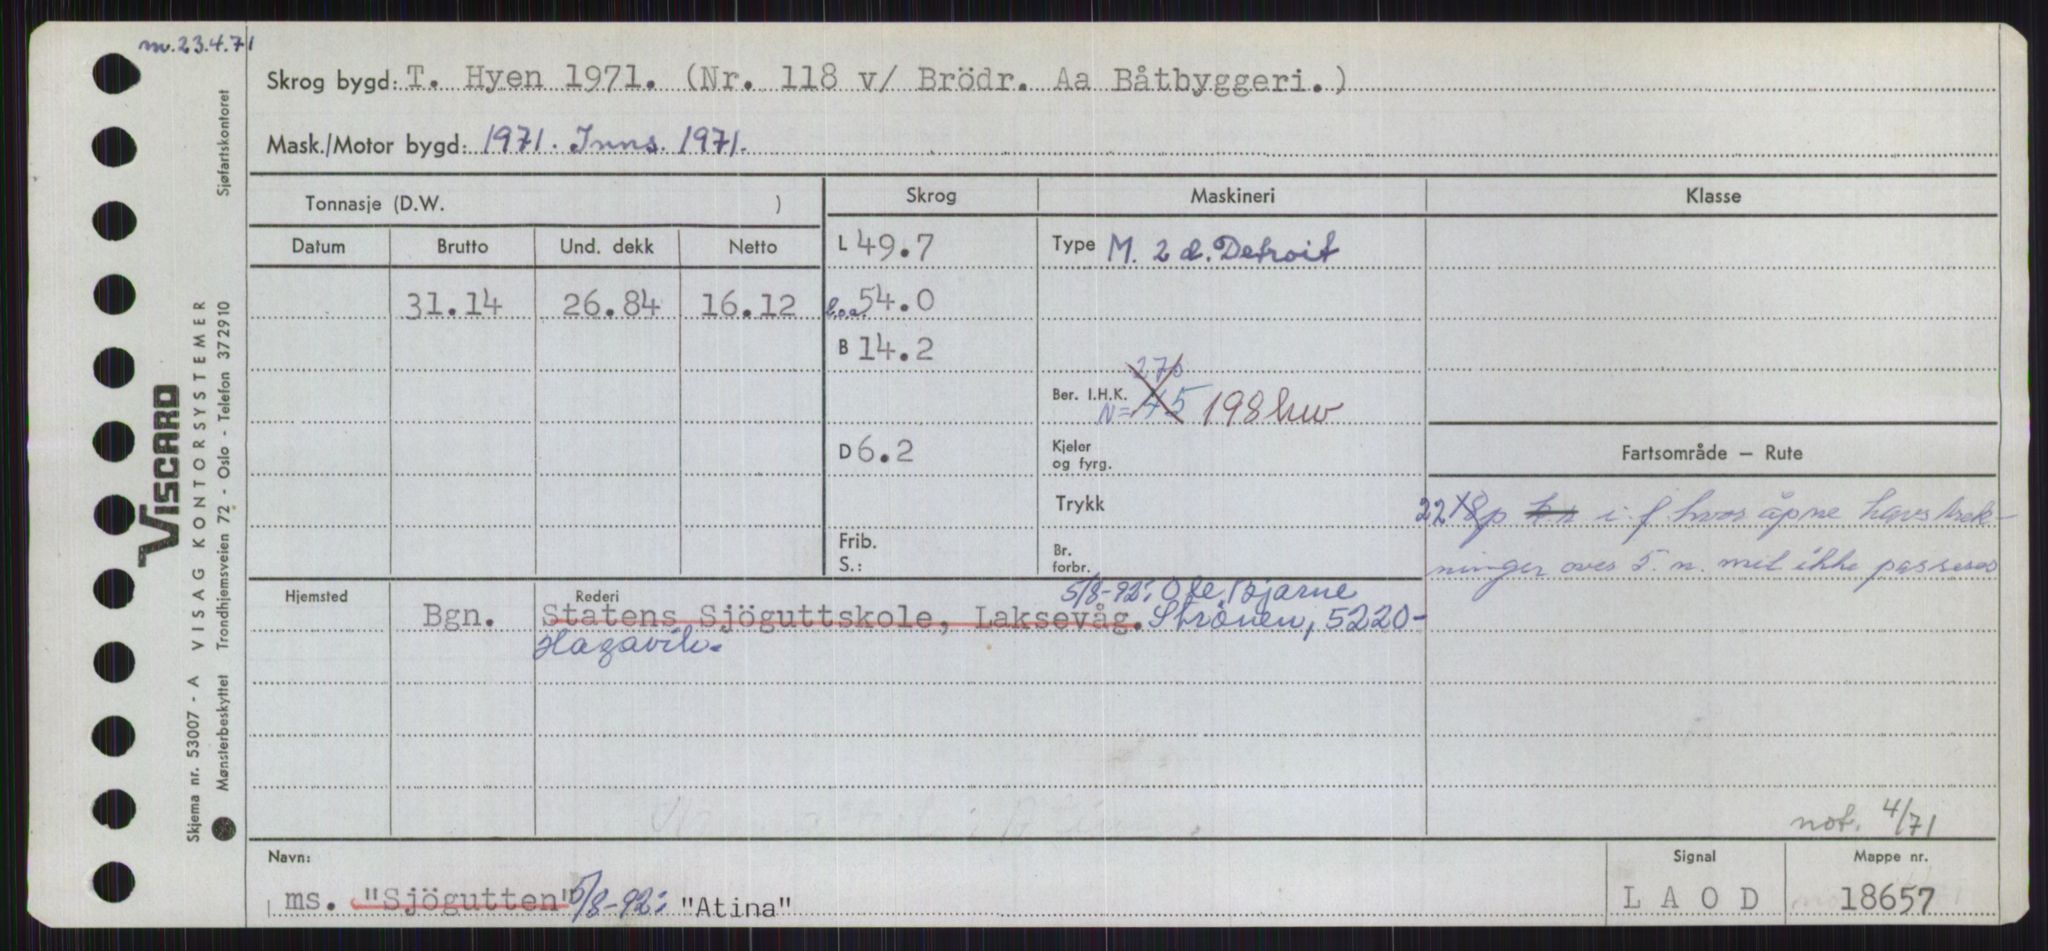 m. 23.4.71
Skrog bygd: T. Hyen 1971. (Nr. 118 v/ Brödr. Aa Båtbyggeri.)
Mask./Motor bygd: 1971. Inns. 1971.
Tonnasje (D.W. )
Skrog
Maskineri
Klasse
Datum Brutto Und. dekk Netto
31.14 26.84 16.12
L 49.7
l.o.a. 54.0
B 14.2
D 6.2
Frib.
S.:
Type M. 2 d. Detroit
270
Ber. I.H.K.
N= 45 198 kw
Kjeler
og fyrg.
Trykk
Br.
forbr.
Fartsområde – Rute
i. f. hvor åpne havstrek-
ninger over 5. n. mil ikke passeres
Hjemsted
Rederi
5/8-92: Ole Bjarne
Bgn. Statens Sjöguttskole, Laksevåg. Strönen, 5220-
Hagavik.
not. 4/71
Navn:
Signal
Mappe nr.
ms. "Sjögutten" 5/8-92: "Atina"
L A O D
18657
VISCARD
VISAG KONTORSYSTEMER
Skjema nr. 53007 - A
Mønsterbeskyttet Trondhjemsveien 72 - Oslo - Telefon 372910
Sjøfartskontoret